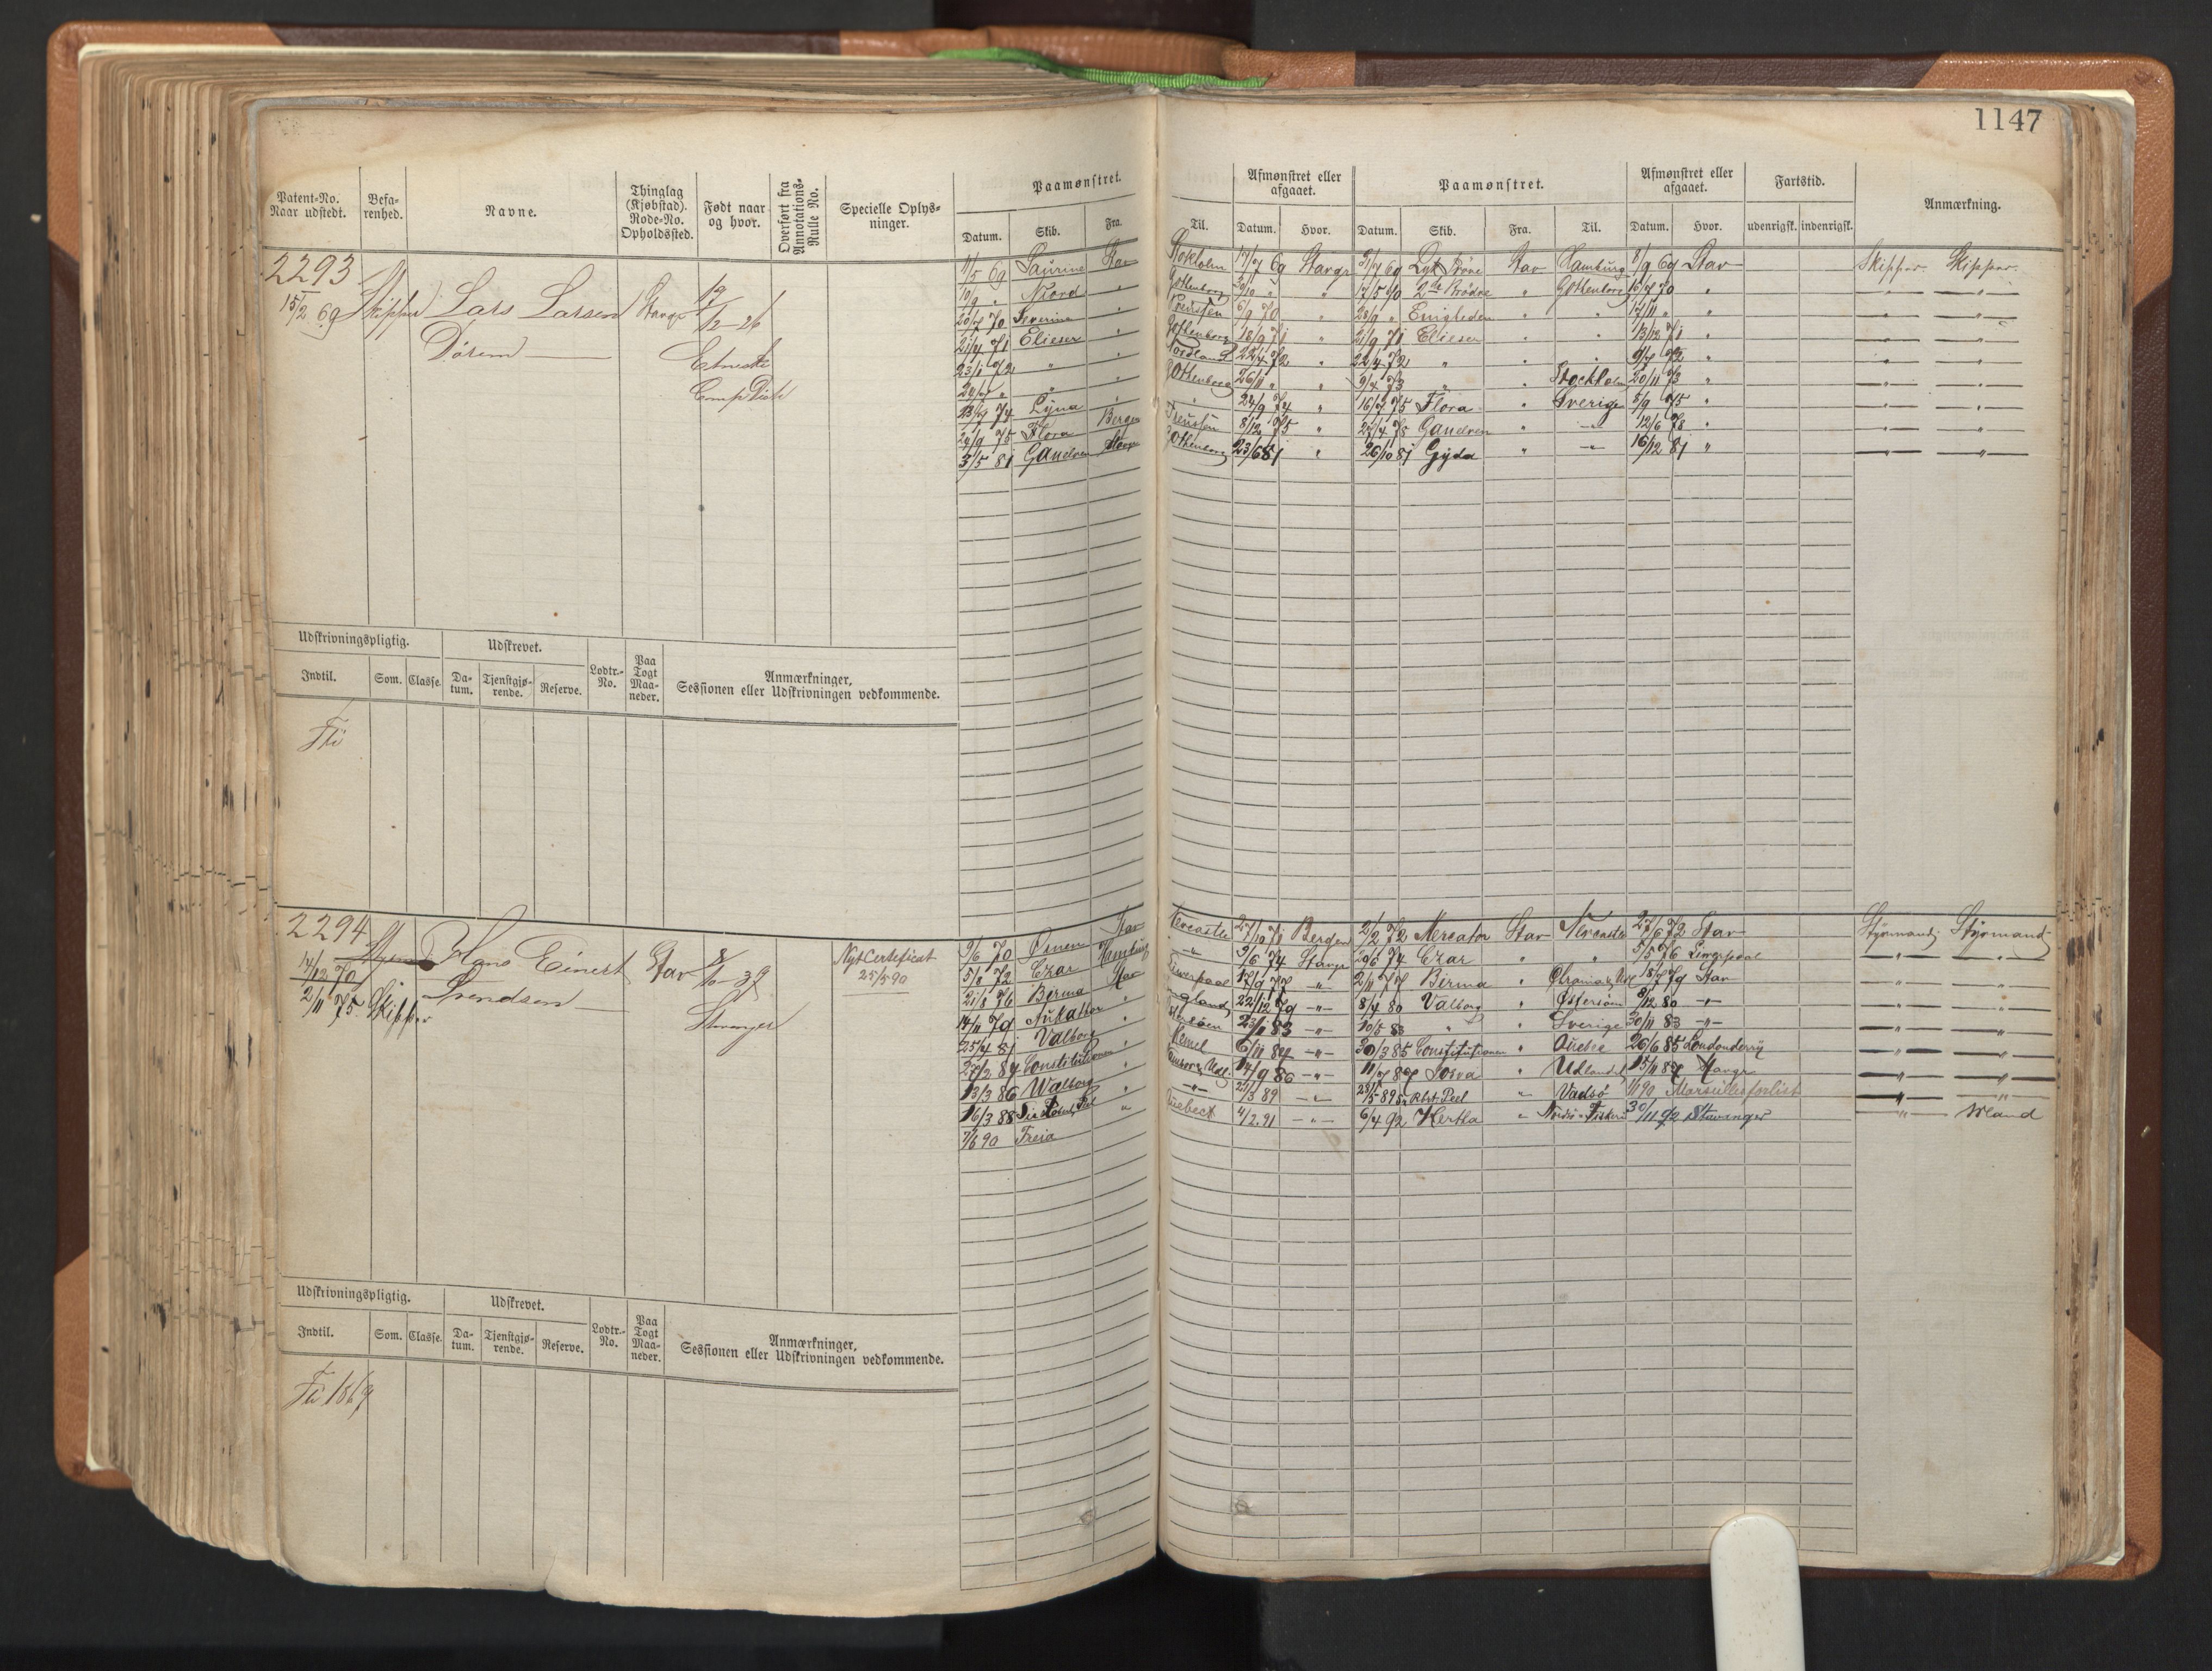 1147
Patent-No. Naar udstedt. Befa-renhed. Navne. Thinglag (Kjøbstad). Rode-No. Opholdssted. Født naar og hvor. Overført fra Annotations-Rulle No. Specielle Oplys-ninger. Paamønstret. Afmønstret eller afgaaet. Paamønstret. Afmønstret eller afgaaet. Fartstid. Anmærkning.
Datum. Skib. Fra. Til. Datum. Hvor. Datum. Skib. Fra. Til. Datum. Hvor. udenrigsk. indenrigsk.
2293
15/2 69 Skipper Lars Larsen Stavgr 19/12-26
11/5 69 Laurine Stav Stokholm 17/7 69 Stavgr Stav Hamburg 8/9 69 Stav Skipper. Skipper.
10/9 " Nord " Gothenborg " 17/5 70 2de Brødre " Gothenborg 16/7 70 " " "
20/7 70 Severine " 6/9 70 " 28/9 " Enigheden " " 17/11 " " " "
21/4 71 Elieser " Gothenborg 18/9 71 " 21/9 71 Elieser " " 13/12 71 " " "
23/1 72 " " Nordland 22/4 72 " 22/4 72 " " " 9/7 72 " " "
" " Gothenborg 26/11 " " 9/4 73 " " Stockholm 20/11 73 " " "
23/7 74 Lyna " " 24/9 74 " 16/7 75 Flora " Sverige 5/9 75 " " "
24/9 75 Flora Bergen Preussen 8/12 75 " 27/4 78 Gaudven " -"- 12/6 78 " " "
3/5 81 Gauden Stavgr Gothenborg 23/6 81 " 26/10 81 Gyda " -"- 16/12 81 " " "
Udskrivningspligtig. Udskrevet. Lodtr.-No. Paa Togt Maa-neder. Anmærkninger, Sessionen eller Udskrivningen vedkommende.
Indtil. Som. Classe. Da-tum. Tjenstgjø-rende. Reserve.
Fri
2294
14/12 70 Hans Einert Stav 8/6-37 Nyt Certeficat 25/5 90
2/11 75. Skipper Svendsen Stavanger
9/6 70 Stav Newcastle 27/10 71 Bergen 2/2 72 Mercator Stav Newcastle 27/6 72 Stav Styrmand. Styrmand
5/8 72 Czar Hamburg -"- 9/6 74 Stavgr 29/6 74 Czar " " 5/5 76 Liverpool " "
21/8 76 Birma Stav Liverpool 17/9 77 -"- 2/11 77 Birma " 18/7 79 Stav " "
14/11 79 " England 22/12 79 -"- 8/4 80 Valborg " Østersøen 8/12 80 -"- " "
25/4 81 Valborg " Østersøen 23/11 83 -"- 10/5 83 " " Sverige 30/11 83 -"- " "
27/2 84 Constitutionen " Memel 6/11 84 -"- 30/3 85 Constitutionen " Quebec 26/6 85 Londonderry " "
13/3 86 Walborg " 14/9 86 -"- " Udlandet 15/11 87 Stavgr " "
16/3 88 Sir Robert Peel " -"- 21/3 89 -"- 23/5 89 Sir Robt Peel " Vadsø 1/1 90 Marseille forlist " "
7/6 90 Freia " Quebeck 4/2.91 -"- 6/4 92 Hertha " Nordsø-Fiskeri 30/11 92 Stavanger " Irland
Udskrivningspligtig. Udskrevet. Lodtr.-No. Paa Togt Maa-neder. Anmærkninger, Sessionen eller Udskrivningen vedkommende.
Indtil. Som. Classe. Da-tum. Tjenstgjø-rende. Reserve.
Fri 1869